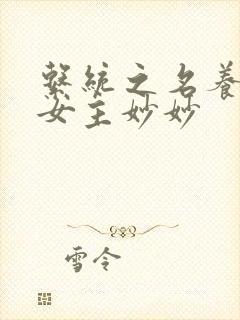 繫統之名養
女主妙妙
雪令